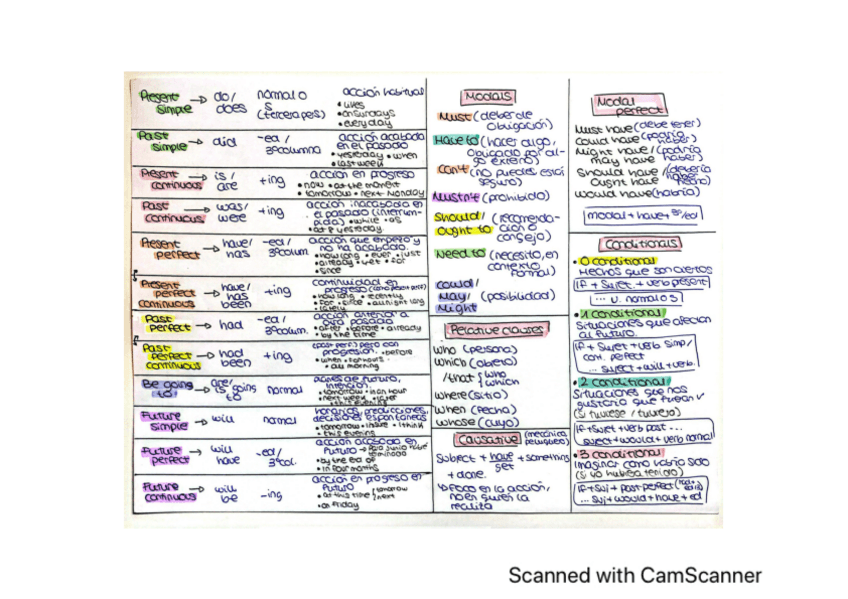 Present simple → do/ does normal o s (tercera pers) acción habitual
• lives
• on saturdays
• every day
Past simple → did -ed/ 3ª columna acción acabada en el pasado
• yesterday • when
• last week
Present continuous → is/ are +ing acción en progreso
• now • at the moment
• tomorrow • next Monday
Past continuous → was/ were +ing acción inacabada en el pasado (interrumpida) • while • as
yesterday
Present perfect → have/ has -ed/ 3ª colum acción que empezó y no ha acabado.
• how long • ever • just
• already • yet • for
• since
Present perfect continuous → have/ has been +ing continuidad en progreso
• how long • recently
• for • since • all night long
• lately
Past perfect → had -ed/ 3ª colum. acción anterior a otra pasada
• after • before • already
• by the time
Past perfect continuous → had been +ing (past perf.) pero con progresión. • before
• when • for hours
• all morning
Be going to → are/ is going to normal planes de futuro, intención.
• tomorrow • in an hour
next week • later
• this evening
Future simple → will normal horarios, predicciones, decisiones espontáneas
• tomorrow • I think
• this evening
Future perfect → will have -ed/ 3ª col. acción acabada en futuro
• by the end of
• in four months
Future continuous → will be -ing acción en progreso en futuro • tomorrow
• at this time / next
• on Friday
Modals
Must (deber de obligación)
Have to (hacer algo, obligado por algo externo)
Can't (no puedes está seguro)
Mustn't (prohibido)
Should/ ought to (recomendación o consejo)
Need to (necesito, en contexto formal)
could/ May/ Might (posibilidad)
Relative clauses
Who (persona)
Which (objeto)
/that { who which
Where (sitio)
When (fecha)
Whose (cuyo)
Causative (mecánica peluquera)
Subject + have get + something + done.
↳ Foco en la acción, no en quien la realiza
Modal perfect
Must have (debe tener)
Could have (podría haber)
Might have / may have (podría haber)
Should have / Ought have (debería haber hecho)
Would have (habría)
modal + have + 3ª/ed
Conditionals
• 0 conditional
Hechos que son ciertos
If + sujet. + verb present
... v. normal o s
• 1 conditional
Situaciones que afectan al futuro.
If + sujet + verb simp/ cont. perfect
... sujet + will + verb.
• 2 conditional
Situaciones que nos gustaría que fueran v (si tuviese / tuviera)
If + sujet + verb past ...
sujet + would + verb normal
• 3 conditional
Imaginar como habría sido (si yo hubiera tenido)
If + suj + past perfect (had + ed/3)
... suj + would + have + ed
Scanned with CamScanner